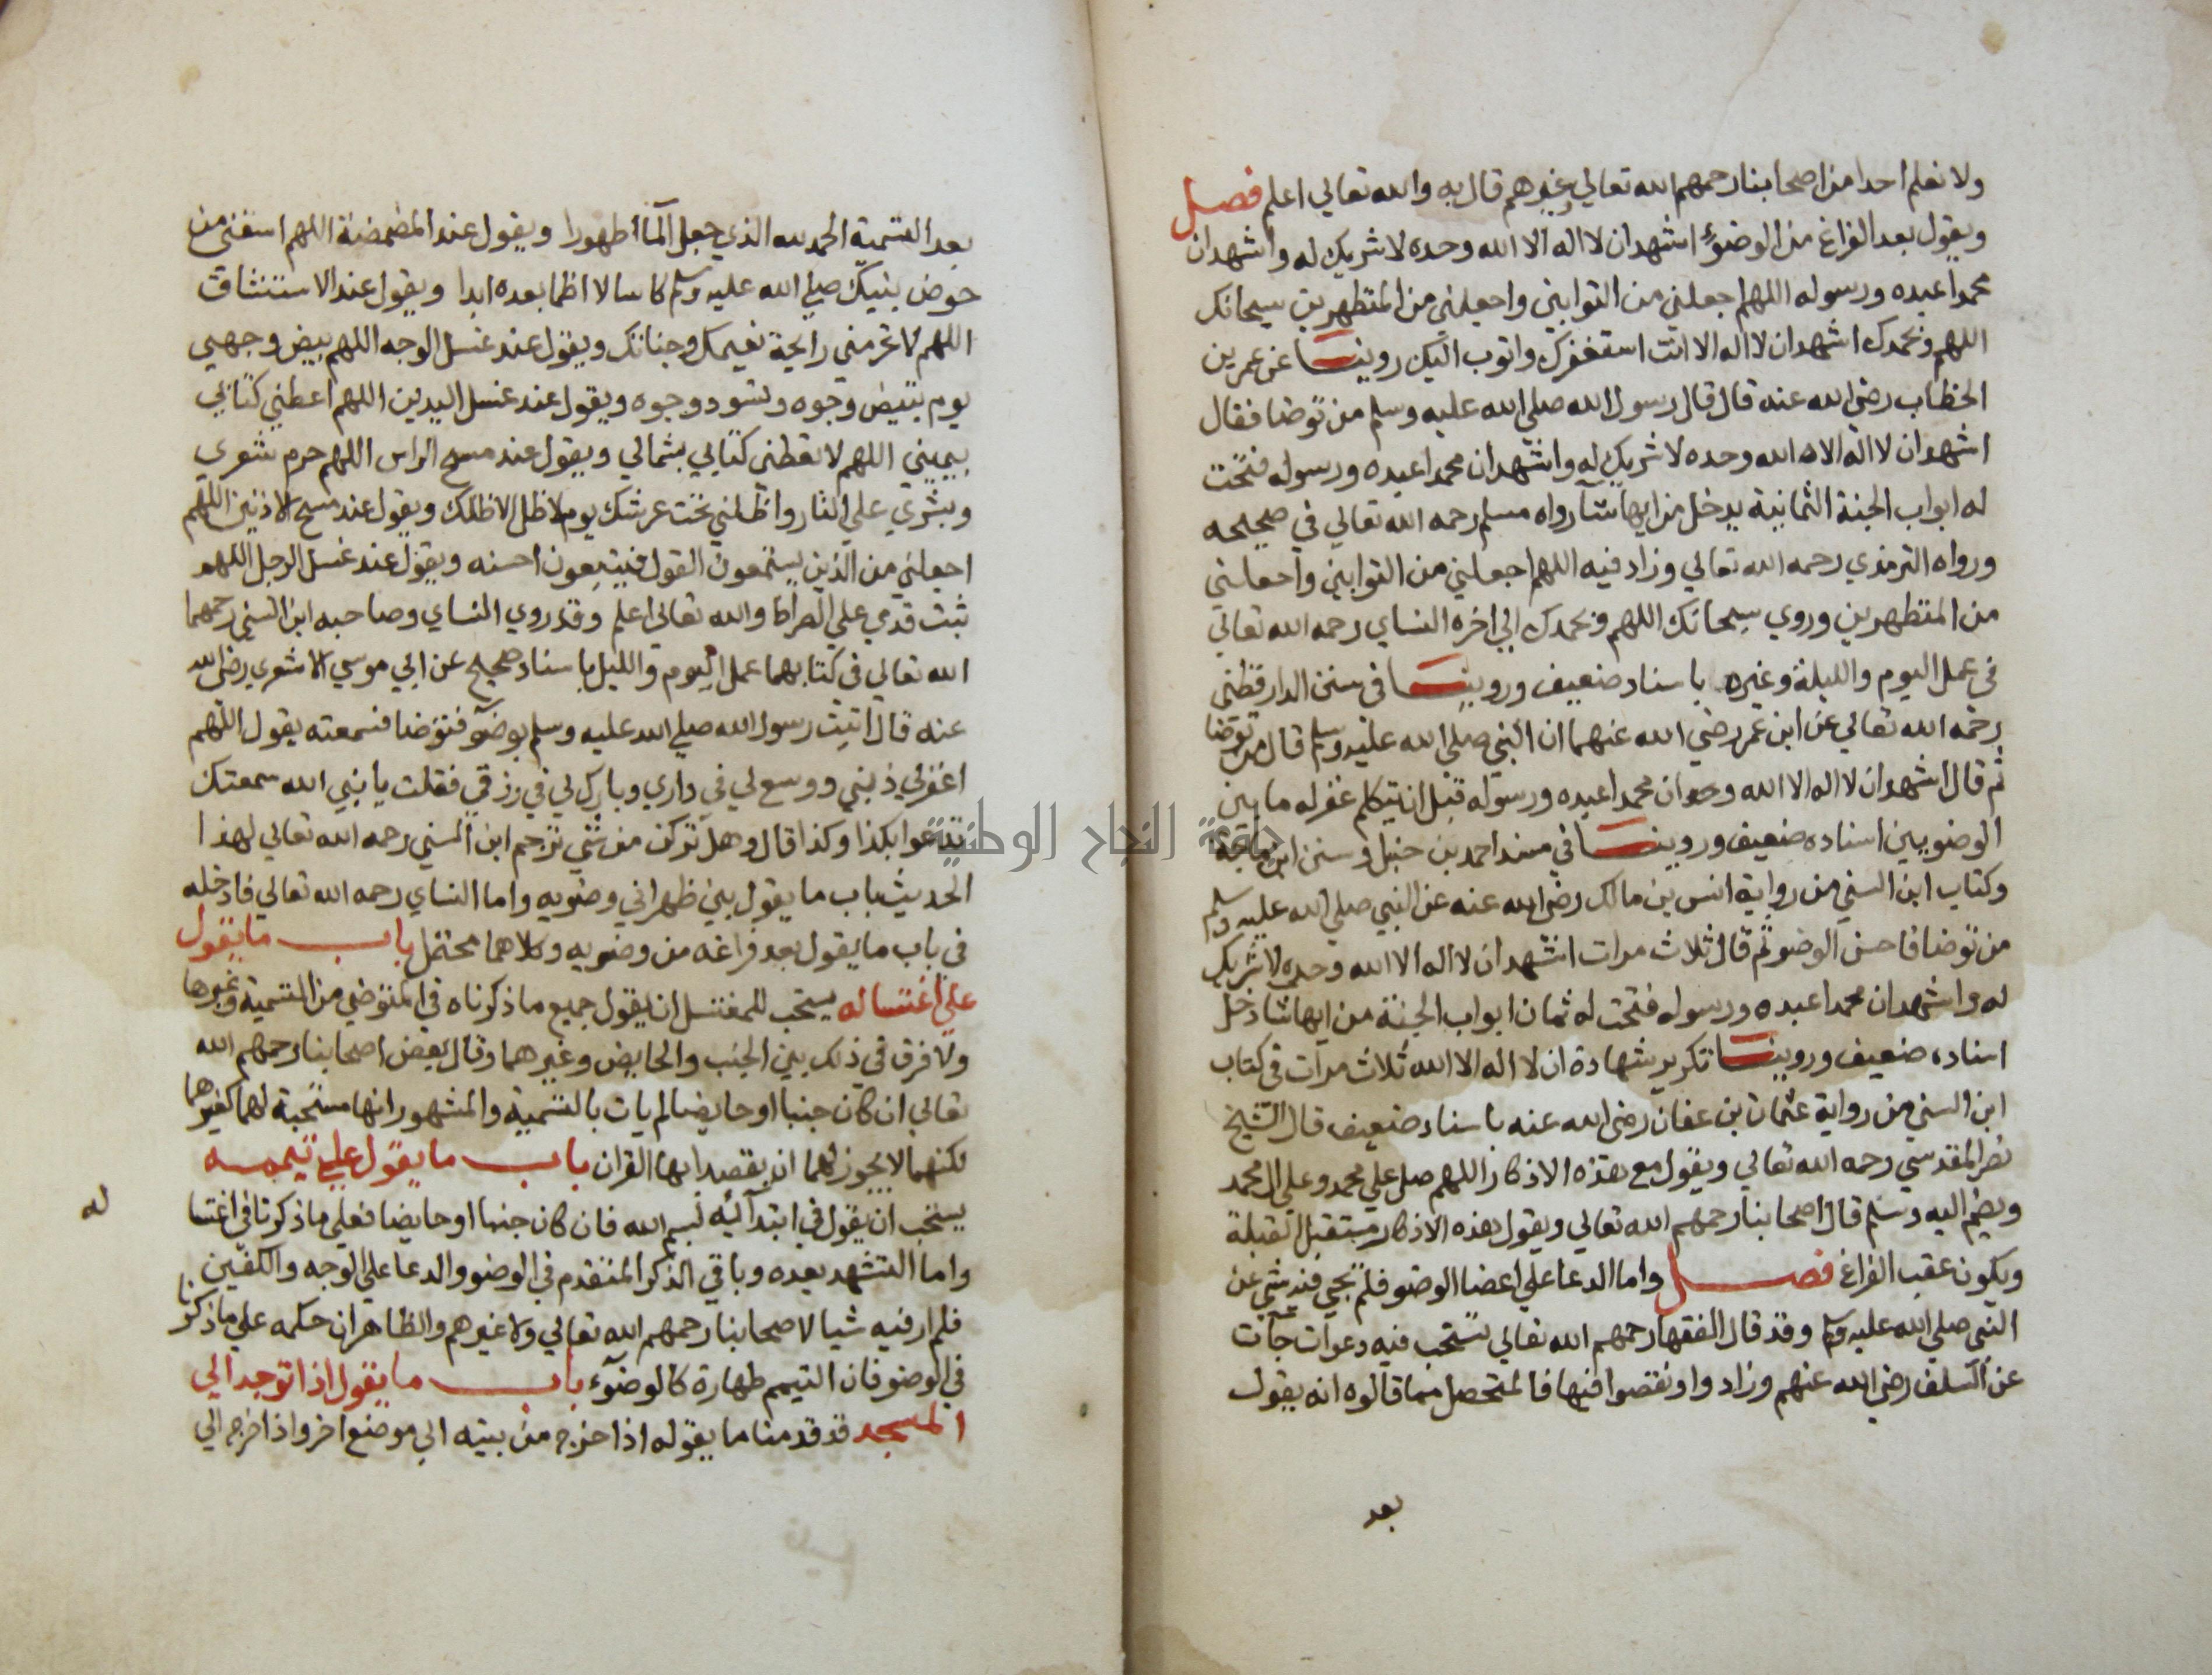 ولا نعلم احدا من اصحابنا رحمهم الله تعالي وغيرهم قال به والله تعالي اعلم فصل
ويقول بعد الفراغ من الوضوء اشهد ان لا اله الا الله وحده لا شريك له واشهد ان
محمدا عبده ورسوله اللهم اجعلني من التوابين واجعلني من المتطهرين سبحانك
اللهم وبحمدك اشهد ان لا اله الا انت استغفرك واتوب اليك روينا عن عمر بن
الخطاب رضي الله عنه قال قال رسول الله صلي الله عليه وسلم من توضا فقال
اشهد ان لا اله الا الله وحده لا شريك له واشهد ان محمدا عبده ورسوله فتحت
له ابواب الجنة الثمانية يدخل من ايها شا رواه مسلم رحمه الله تعالي في صحيحه
ورواه الترمذي رحمه الله تعالي وزاد فيه اللهم اجعلني من التوابين واجعلني
من المتطهرين وروي سبحانك اللهم وبحمدك الي اخره النساي رحمه الله تعالي
في عمل اليوم والليلة وغيره باسناد ضعيف وروينا في سنن الدارقطني
رحمه الله تعالي عن ابن عمر رضي الله عنهما ان النبي صلي الله عليه وسلم قال من توضا
ثم قال اشهد ان لا اله الا الله وحو ان محمدا عبده ورسوله قبل ان يتكلم غفر له ما بين
الوضويين اسناده ضعيف وروينا في مسند احمد بن حنبل وسنن ابن ماجة
وكتاب ابن السني من رواية انس بن مالك رضي الله عنه عن النبي صلي الله عليه وسلم
من توضا فاحسن الوضو ثم قال ثلاث مرات اشهد ان لا اله الا الله وحده لا شريك
له واشهد ان محمدا عبده ورسوله فتحت له ثمان ابواب الجنة من ايها شا دخل
اسناده ضعيف وروينا تكرير شهادة ان لا اله الا الله ثلاث مرات في كتاب
ابن السني من رواية عثمان بن عفان رضي الله عنه باسناد ضعيف قال الشيخ
نصر المقدسي رحمه الله تعالي ويقول مع هذه الاذكار اللهم صل علي محمد وعلي ال محمد
ويضم اليه وسلم قال اصحابنا رحمهم الله تعالي ويقول هذه الاذكار مستقبل القبلة
ويكون عقب الفراغ فصل واما الدعا علي اعضا الوضو فلم يجي فيه شي عن
النبي صلي الله عليه وسلم وقد قال الفقها رحمهم الله تعالي يستحب فيه دعوات جآت
عن السلف رضي الله عنهم وزادوا ونقصوا فيها فالمتحصل مما قالوه انه يقول
بعد
بعد التسمية الحمد لله الذي جعل المآ طهورا ويقول عند المضمضة اللهم اسقني من
حوض نبيك صلي الله عليه وسلم كاسا لا اظما بعده ابدا ويقول عند الاستنشاق
اللهم لا تحرمني رايحة نعيمك وجناتك ويقول عند غسل الوجه اللهم بيض وجهي
يوم تبيض وجوه وتسود وجوه ويقول عند غسل اليدين اللهم اعطني كتابي
بيميني اللهم لا تعطني كتابي بشمالي ويقول عند مسح الراس اللهم حرم شعري
وبشري علي النار واظلني تحت عرشك يوم لا ظل الا ظلك ويقول عند مسح الاذنين اللهم
اجعلني من الذين يستمعون القول فيتبعون احسنه ويقول عند غسل الرجل اللهم
ثبت قدمي علي الصراط والله تعالي اعلم وقد روي النساي وصاحبه ابن السني رحمهما
الله تعالي في كتابيهما عمل اليوم والليل باسناد صحيح عن ابي موسي الاشعري رضي الله
عنه قال اتيت رسول الله صلي الله عليه وسلم بوضوء فتوضا فسمعته يقول اللهم
اغفر لي ذنبي ووسع لي في داري وبارك لي في رزقي فقلت يا نبي الله سمعتك
تدعوا بكذا وكذا قال وهل تركن من شي ترجم ابن السني رحمه الله تعالي لهذا
الحديث باب ما يقول بين ظهراني وضويه واما النساي رحمه الله تعالي فادخله
في باب ما يقول بعد فراغه من وضويه وكلاهما محتمل باب ما يقول
علي اغتساله يستحب للمغتسل ان يقول جميع ما ذكرناه في المتوضي من التسمية وغيرها
ولا فرق في ذلك بين الجنب والحايض وغيرهما وقال بعض اصحابنا رحمهم الله
تعالي ان كان جنبا او حايضا لم يات بالتسمية والمشهور انها مستحبة لهما كغيرهما
لكنهما لا يجوز لهما ان يقصدا بها القران باب ما يقول علي تيممه
يستحب ان يقول في ابتدآئه بسم الله فان كان جنبا او حايضا فعلي ما ذكرنا في اغتسا
له
واما التشهد بعده وباقي الذكر المتقدم في الوضو والدعا علي الوجه والكفين
فلم ار فيه شيا لاصحابنا رحمهم الله تعالي ولا غيرهم والظاهر ان حكمه علي ما ذكرنا
في الوضو فان التيمم طهارة كالوضوء باب ما يقول اذا توجه الي
المسجد قد قدمنا ما يقوله اذا خرج من بيته الي موضع اخر واذا خرج الي
جامعة النجاح الوطنية